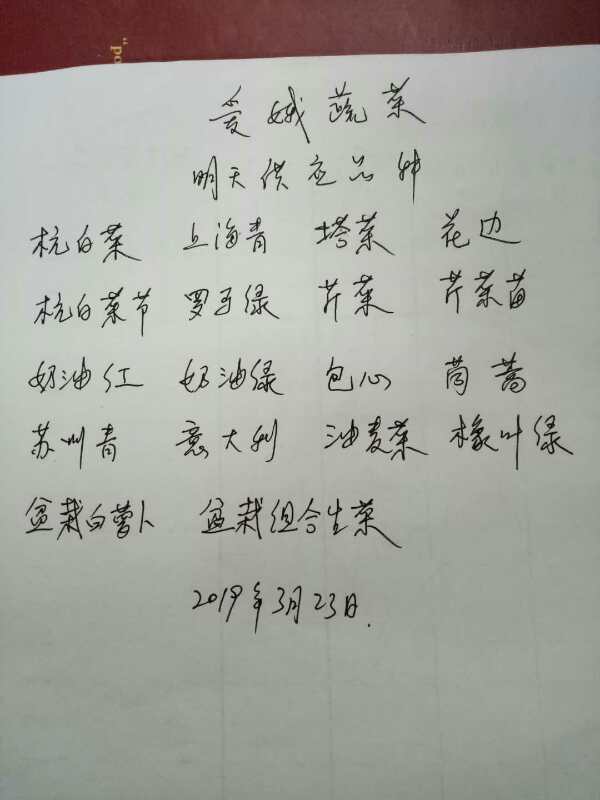 "po
爱娥蔬菜
明天供应品种
杭白菜 上海青 塔菜 花边
杭白菜节 罗子绿 芹菜 芹菜苗
奶油红 奶油绿 包心 茼蒿
苏州青 意大利 油麦菜 橡叶绿
盆栽白萝卜 盆栽组合生菜
2019年3月23日.